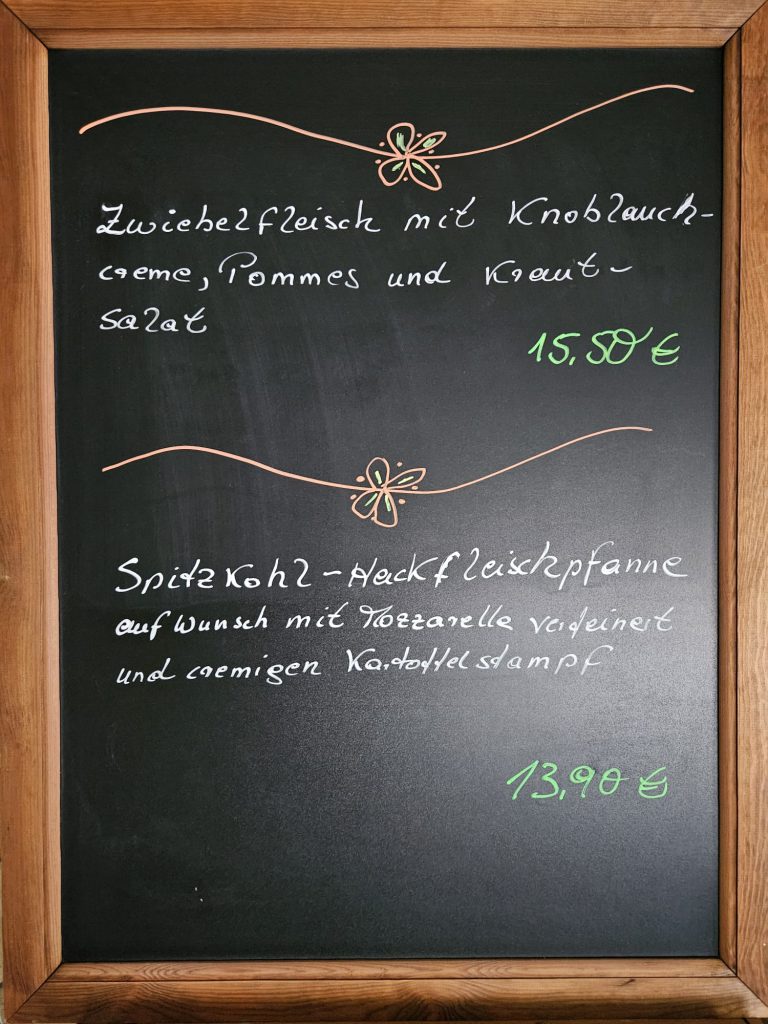 Zwiebelfleisch mit Knoblauch-
creme, Pommes und Kraut-
salat
15,50 €
Spitzkohl-Hackfleischpfanne
auf Wunsch mit Mozzarella verfeinert
und cremigen Kartoffelstampf
13,90 €